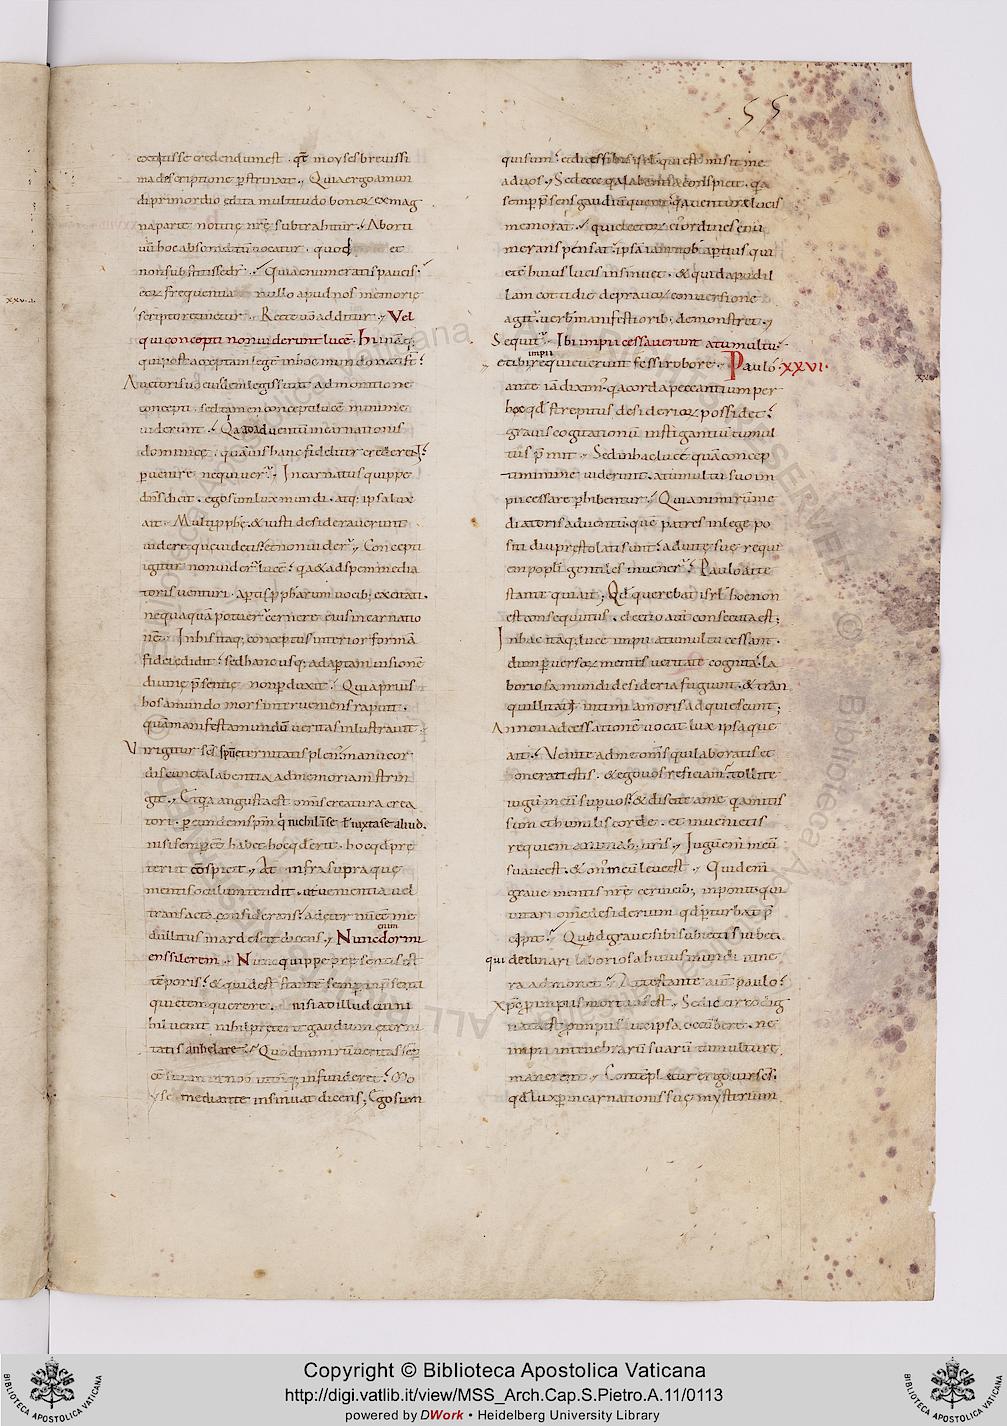 55
extitisse credendum est. qđ moyses brevissi
ma descriptione pstrinxit. Quia ergo a mun
di primordio edita multitudo bonoꝝ ex mag
na parte notitię nrę subtrahitur. Aborti
uū hoc absconditū vocatur. quod et
non substitisse dr̄. Quia enumeratis paucis.
eoꝝ frequentia nullo apud nos memorię
scripto retinetur. Recte uō additur. Vel
qui concepti non viderunt lucē. Hi nāq;
qui post acceptam legē in hoc mundo nati sť
Auctori suo eiusdem legis sunt admonitione
concepti. sed tamen concepti lucē minime
viderunt. Qa ad adventum incarnationis
dominicę. quāvis hanc fideliter crederent.
pvenire nequiver. Incarnatus quippe
dn̄s dicit. ego sum lux mundi. atq; ipsa lux
ait. Multi pphę. & iusti desideraverunt
videre quę videtis. et non vider. Concepti
igitur non vider lucē. qa & ad spem media
toris venturi. aptis pphārum vocib; excitati.
nequaquā potuer cernere eius incarnatio
nē. In his itaq; conceptus interior formā
fidei edidit. sed hanc usq; ad aptam visionē
divinę psentię non pduxit. Quia prius
hos a mundo mors interveniens rapuit.
quā manifesta mundū veritas inlustravit.
Vir igitur scī spū ęternitatis plen. manu cor
dis cuncta labentia ad memoriam strin
git. Et qa angusta est omīs creatura crea
tori. p eundem spm̄ q nichil in se ł iuxta se aliud.
nisi semp eē habet. hoc qđ erit. hoc qđ prę
terit cōspicit. At infra supraque
mentis oculum tendit. ut ventura vel
transacta considerans. ad ęternū eē me
dullitus inardescit dicens. Nunc enim dormi
ens silerem. Nunc quippe pręsentis est
tēporis. & quid est stante semp in psenti
quietem querere. nisi ad illud cui ni
hil venit nihil pręterit gaudium ęterni
tatis anhelare. Quod nimirū veritas sep
eē suum in nob vtcūq; infunderet. Mo
yse mediante insinuat dicens; Ego sum
qui sum. et dices filiis isrl. qui est misit me
ad vos. Sed ecce qa labentia conspicit. qa
semp psens gaudiū querit. qa ventur lucis
memorat. qui electoꝝ ei ordines enu
merans pensat. ipsā iam nob aptius qui
etē huius lucis insinuet. & quid apud il
lam cottidie de pravoꝝ conversione
agit. verb manifestiorib; demonstret.
Sequit. Ibi impii cessaverunt a tumultu.
et ibi requieverunt fessi robore. Paulo XXVI.
ante iā diximus. qa corda peccantium per
hoc qđ strepitus desiderioꝝ possidet.
gravis cogitationū instigantiū tumul
tus pmit. Sed in hac luce quā concep
ti minime viderunt. a tumultu suo im
pii cessare phibentur. Quia nimirū me
diatoris adventū. quē patres in lege po
siti diu pręstolati sunt. ad vitę suę requi
em popli gentiles invener. Paulo atte
stante qui ait; Qđ querebat isrl hoc non
est consequutus. electio autē consecuta est;
In hac itaq; luce impii a tumultu cessant.
dum pversoꝝ mentes veritate cognita. la
boriosa mundi desideria fugiunt. & tran
quillitati intimi amoris adquiescunt;
An non ad cessationē vocat lux ipsa que
ait. Venite ad me om̄s qui laboratis et
onerati estis. & ego vos reficiam. tollite
iugū meū sup vos. & discite a me qa mitis
sum et humilis corde. et invenietis
requiem animab; vris. Iugū enī meū
suave est. & onus meū leve est. Quid enī
grave mentis nrę cervicib; inponit. qui
vitari omne desiderium qđ pturbat pci
pit. Quid grave sibi subiectis iubet.
qui declinari laboriosa huius mundi itine
ra admonet. Attestante autē paulo.
Xpc p impiis mortuus est. Sed ideo dig
nata est p impiis lux ipsa occūbere. ne
impii in tenebrarū suarū tumultu
manerent. Contēpletur ergo vir scs.
qđ lux p incarnationis suę mysterium
XXVI.
Copyright © Biblioteca Apostolica Vaticana
http://digi.vatlib.it/view/MSS_Arch.Cap.S.Pietro.A.11/0113
powered by DWork • Heidelberg University Library
BIBLIOTECA APOSTOLICA VATICANA
BIBLIOTECA APOSTOLICA VATICANA